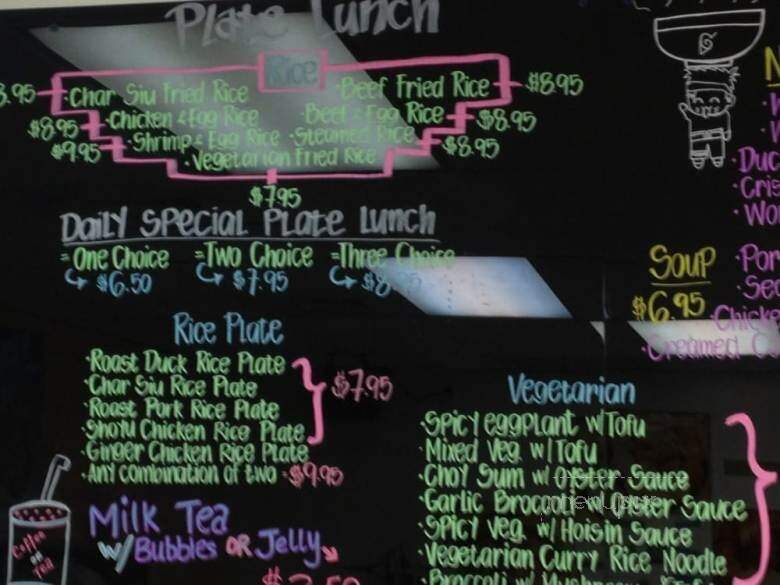 Plate Lunch
Rice
Char Siu Fried Rice
Beef Fried Rice
$8.95
Chicken & Egg Rice
Beef & Egg Rice
$8.95
$8.95
Shrimp & Egg Rice
Steamed Rice
$9.95
$8.95
Vegetarian Fried Rice
$7.95
Daily Special Plate Lunch
= One Choice =Two Choice =Three Choice
$6.50 $7.95
Soup
$6.95
Rice Plate
Roast Duck Rice Plate
Char Siu Rice Plate
$7.95
Roast Pork Rice Plate
Shoyu Chicken Rice Plate
Ginger Chicken Rice Plate
Any combination of two - $9.95
Vegetarian
Spicy eggplant w/Tofu
Mixed Veg. w/Tofu
Choy Sum w/ Oyster Sauce
Garlic Broccoli w/ Oyster Sauce
Spicy Veg. w/ Hoisin Sauce
Vegetarian Curry Rice Noodle
Broccoli w/
Milk Tea
w/ Bubbles or Jelly
Coffee
or
Tea